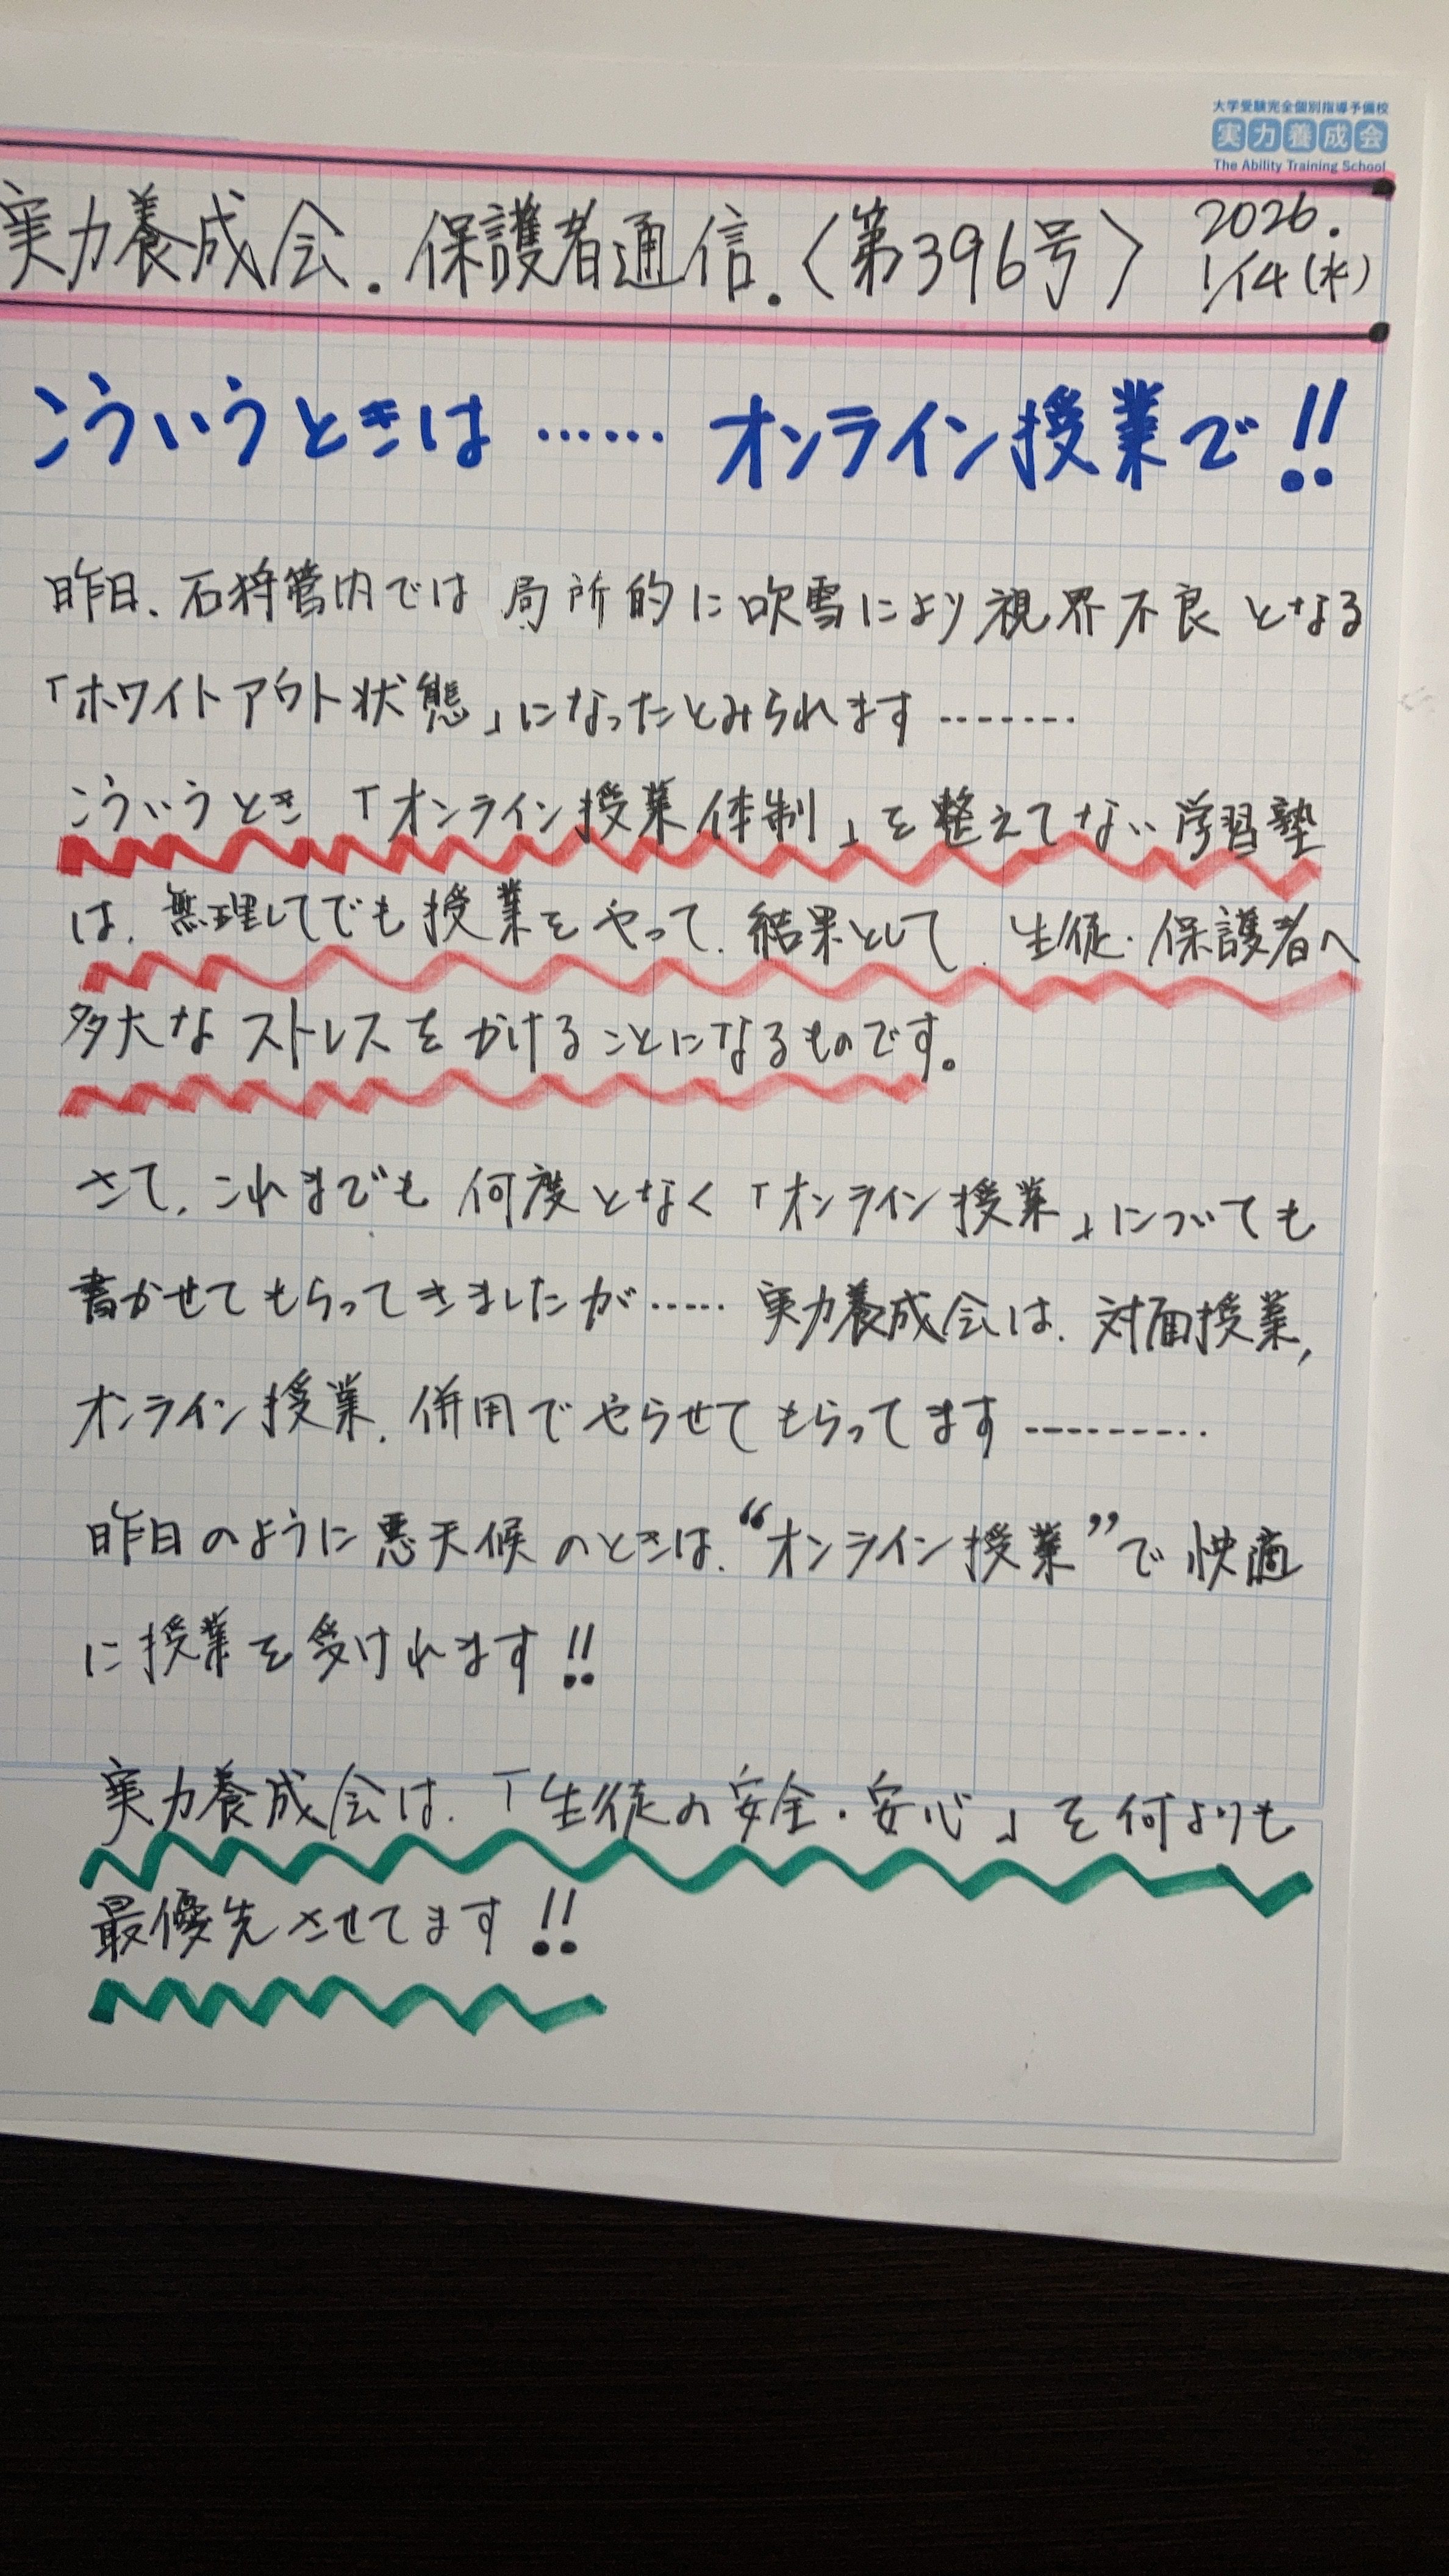 大学受験完全個別指導予備校
実力養成会
The Ability Training School
実力養成会.保護者通信.〈第396号〉 2026.
1/14(水)
こういうときは…… オンライン授業で!!
昨日、石狩管内では 局所的に吹雪により視界不良となる
「ホワイトアウト状態」になったとみられます………
こういうとき「オンライン授業体制」を整えてない学習塾
は、無理してでも授業をやって、結果として、生徒・保護者へ
多大なストレスをかけることになるものです。
さて、これまでも何度となく「オンライン授業」についても
書かせてもらってきましたが…… 実力養成会は、対面授業,
オンライン授業、併用でやらせてもらってます…………
昨日のように悪天候のときは、“オンライン授業”で快適
に授業を受けれます!!
実力養成会は、「生徒の安全・安心」を何よりも
最優先させてます!!